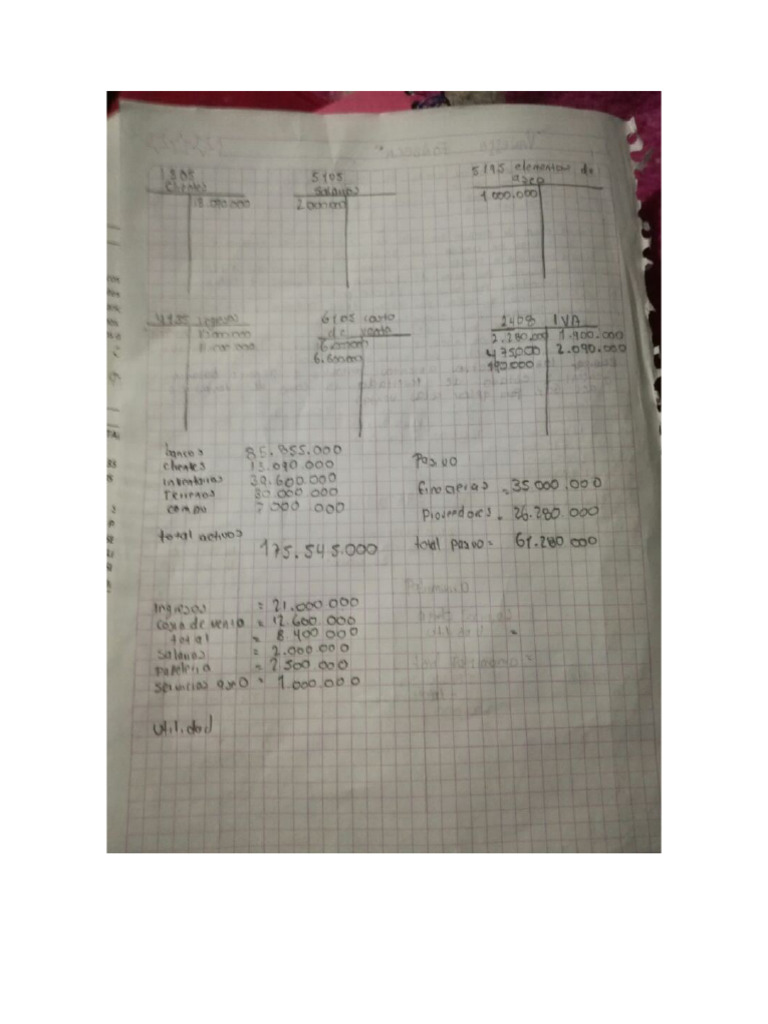 1305
clientes
13.090.000
5105
Salarios
2000000
5195 elementos de
aseo
1.000.000
4135 ingresos
10.000.000
11.000.000
6105 costo
de venta
6.000.000
6.600000
2408 IVA
2.280.000 1.900.000
475000 2.090.000
190.000
bancos 85.855.000
clientes 13.090.000
inventarios 39.600.000
terrenos 30.000 000
compu 7.000 000
total activos
175.545.000
Pasivo
financieras = 35 000.000
Proveedores = 26.280 000
total pasivo = 61.280 000
Ingresos = 21.000 000
Costo de venta = 12 600 000
total = 8 400 000
Salarios = 2.000 000
papeleria = 2 500 000
servicios aseo = 1.000.000
utilidad